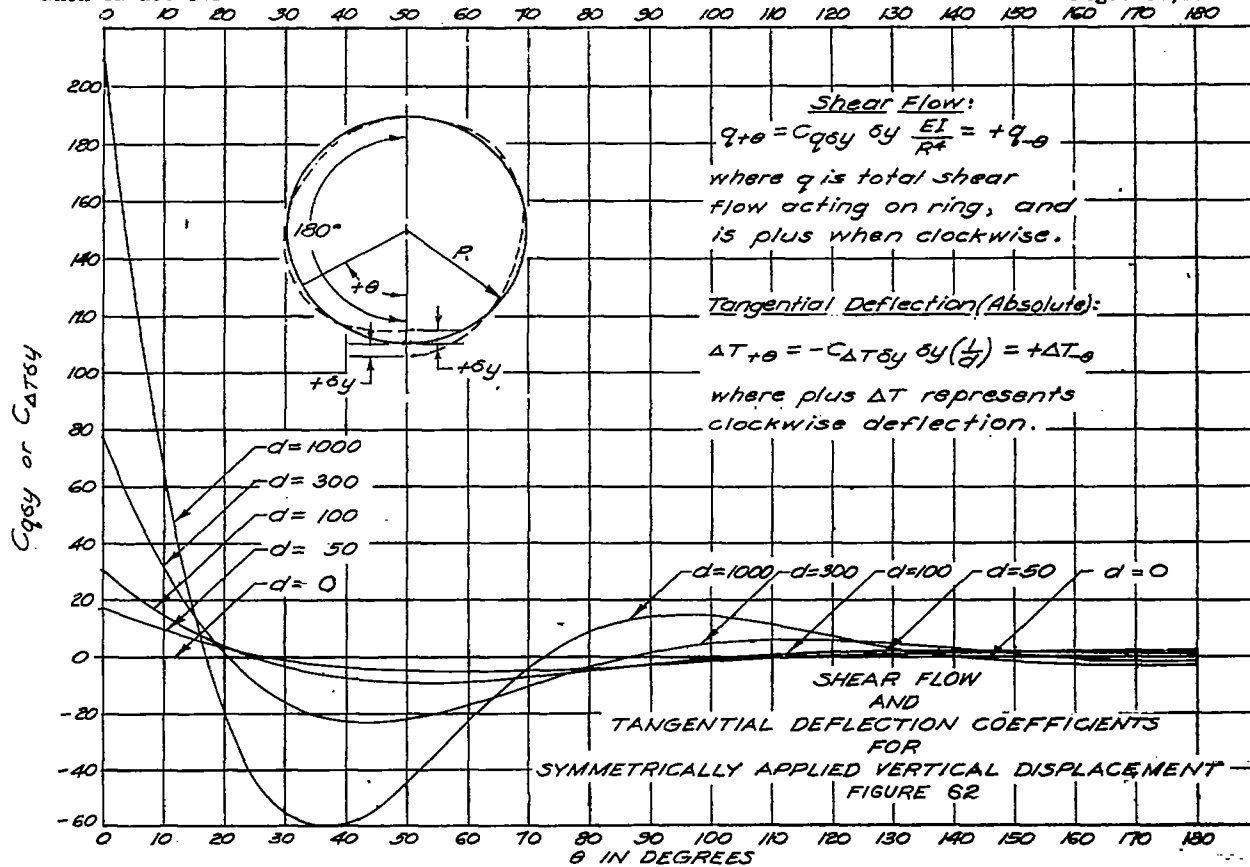 0 10 20 30 40 50 60 70 80 90 100 110 120 130 140 150 160 170 180
200
180
160
140
120
100
80
60
40
20
0
-20
-40
-60
C_qδy or C_ΔTδy
180°
R
+θ
+δy
+δy
Shear Flow:
q_+θ = C_qδy δy EI/R⁴ = +q_-θ
where q is total shear
flow acting on ring, and
is plus when clockwise.
Tangential Deflection (Absolute):
ΔT_+θ = -C_ΔTδy δy (1/d) = +ΔT_-θ
where plus ΔT represents
clockwise deflection.
d=1000
d=300
d=100
d=50
d=0
d=1000 d=300 d=100 d=50 d=0
SHEAR FLOW
AND
TANGENTIAL DEFLECTION COEFFICIENTS
FOR
SYMMETRICALLY APPLIED VERTICAL DISPLACEMENT
FIGURE 62
0 10 20 30 40 50 60 70 80 90 100 110 120 130 140 150 160 170 180
θ IN DEGREES